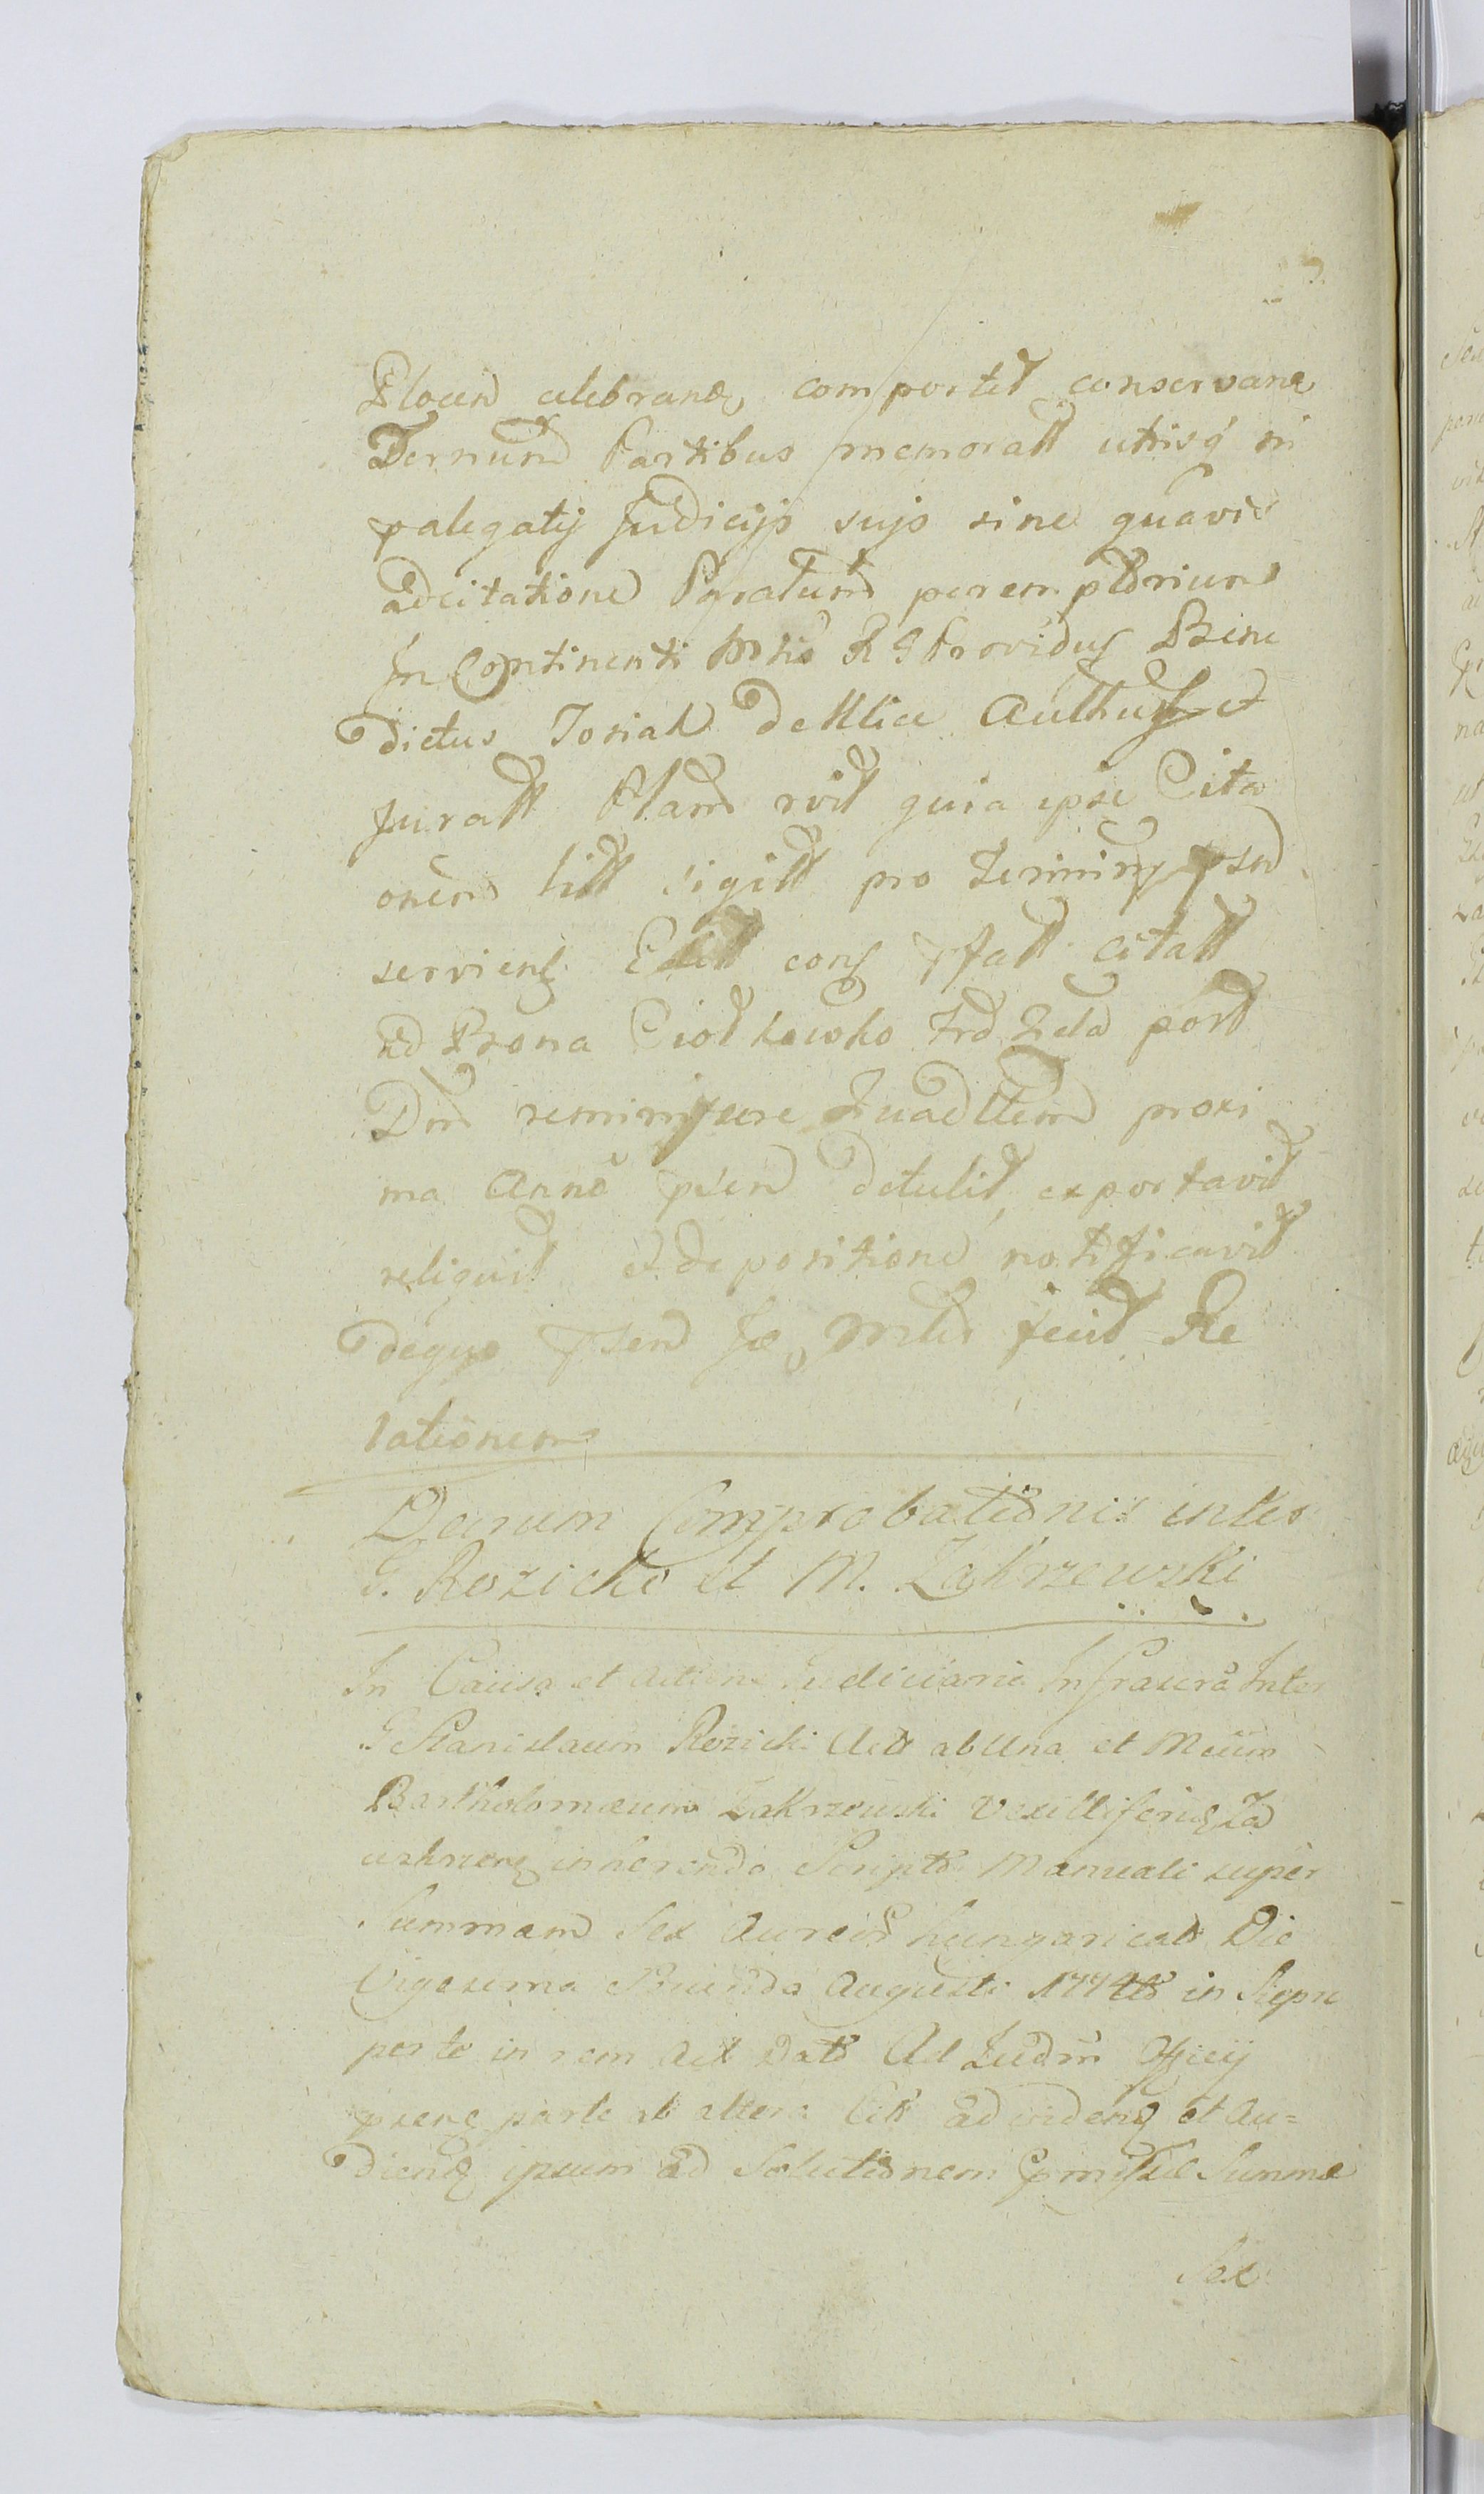 Plocen celebrand comportet conservans
Terminum Partibus memoratt utrisq in
palegatij Judicijs sujs sine quavis
adcitatione Paratum peremptorium
In Continenti Mtio R G Providus Bene
dictus Josiak de Mlice Authus et
Juratt Plam rvit quia ipse Cita
onem litt sigitt pro Termino psn
servient Edit cong pfatt citatt
ad Bzona Ciołkowko Frd Fda post
Dm reminiscere Quadltem proxi
ma Anno psen detulit exportavit
reliquit et depositione notificavit
deqve psen Jx Mtlr fecit Re
lationem
Decrum Comprobationis inter
G. Rozicki et M. Zakrzewski
In Causa et actione Judiciaria Infrascra Inter
G Stanislaum Rozicki Act ab Una et Mcum
Bartholomæum Zakrzewski Vexilliferū Za
uskrzen inherendo Scripto Manuali super
Summam Sex Aureos hungaricals Die
Vigesima Secunda Augusti 1774to in
perte in rem Act dato Ad Judm Officij
psens parte ab altera Citt ad videnq et Au=
dienq ipsum ad Solutionem pmissæ Summæ
Sex